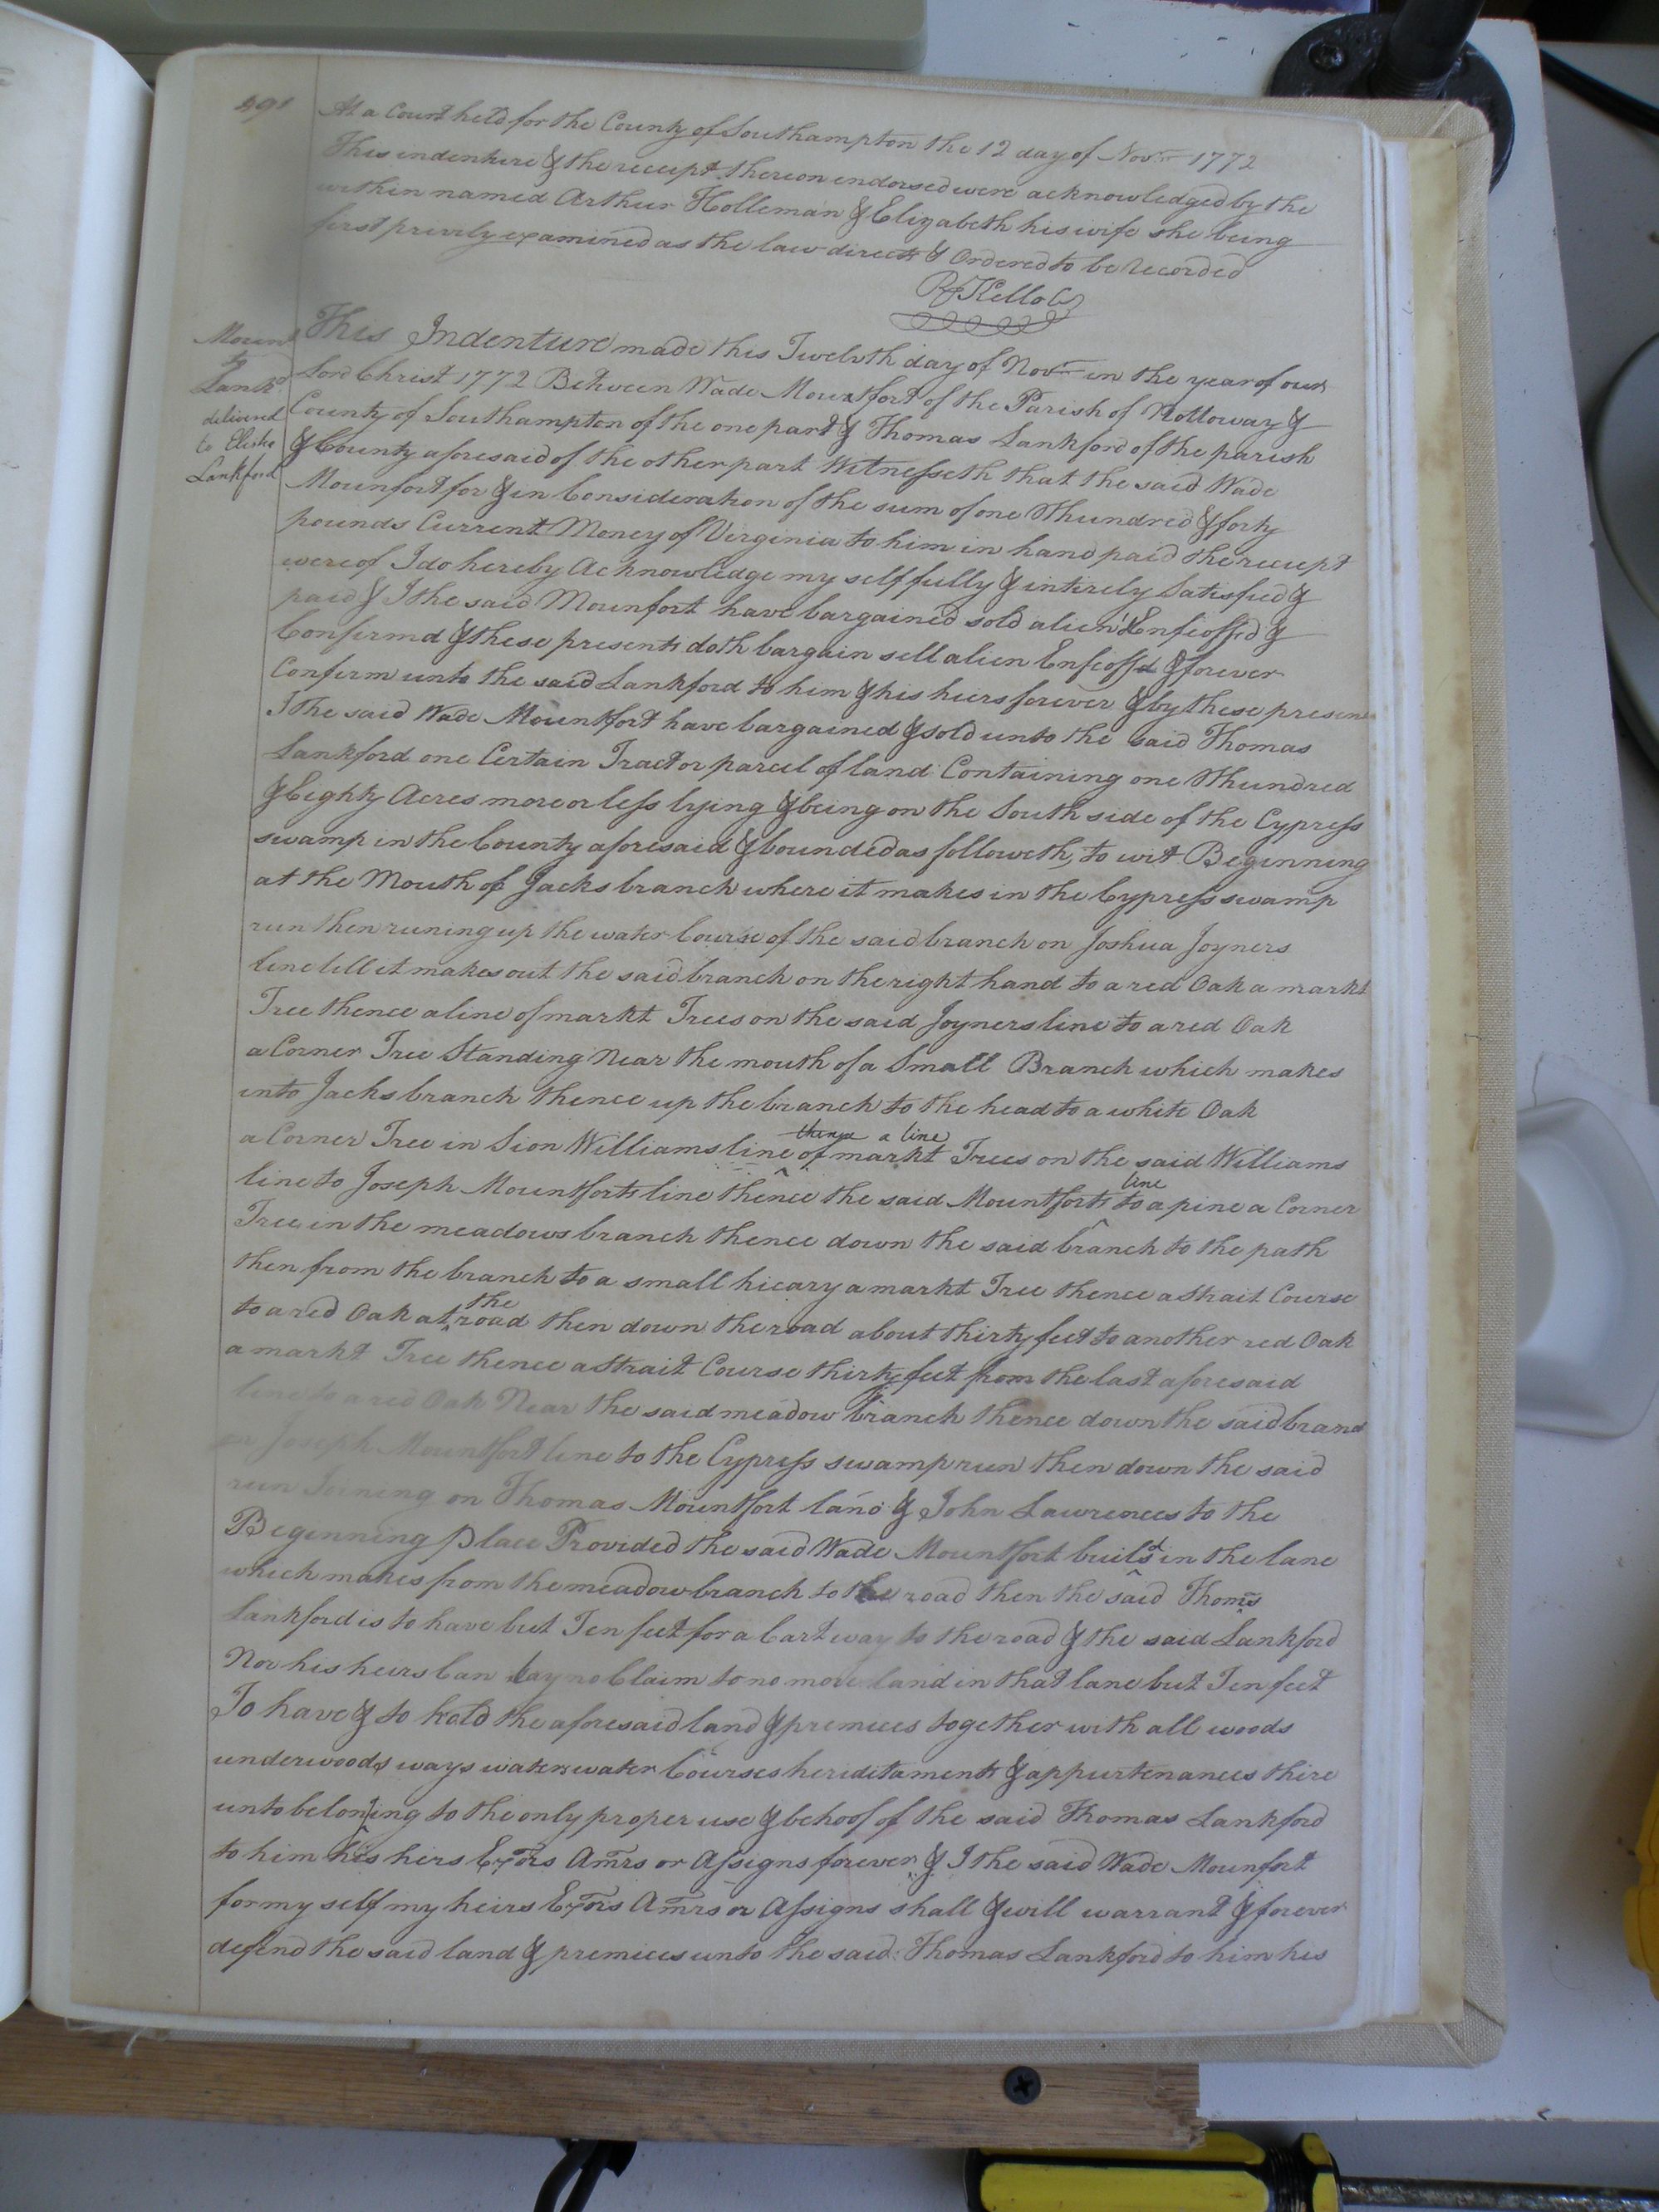 At a Court held for the County of Southampton the 12 day of Novr 1772
This indenture & the receipt thereon endorsed were acknowledged by the
within named Arthur Holleman & Elizabeth his wife she being
first previly examined as the law directs & Ordered to be Recorded
R Kello C
Mount
to
Lankd
delivered
to Elisha
Lankford
This Indenture made this Twelvth day of Novr in the year of our
Lord Christ 1772 Between Wade Mountfort of the Parish of Nottoway &
County of Southampton of the one part & Thomas Lankford of the parish
& County aforesaid of the other part Witnesseth that the said Wade
Mounfort for & in Consideration of the sum of one Hundred & forty
pounds Current Money of Virginia to him in hand paid the receipt
were of I do hereby Acknowledge my self fully & intirely Satisfied &
paid & I the said Mounfort have bargained sold alien'd Enfeoffed &
Confirmd & these presents doth bargain sell alien Enfeoffd & forever
Confirm unto the said Lankford to him & his heirs forever & by these presen
I the said Wade Mountfort have bargained & sold unto the said Thomas
Lankford one Certain Tract or parcel of land Containing one Hundred
& Eighty Acres more or less lying & being on the South side of the Cypress
swamp in the County aforesaid & bounded as followeth, to wit Beginning
at the Mouth of Jacks branch where it makes in the Cypress swamp
run then runing up the water Course of the said branch on Joshua Joyners
line till it makes out the said branch on the right hand to a red Oak a markt
Tree thence a line of markt Trees on the said Joyners line to a red Oak
a Corner Tree Standing Near the mouth of a Small Branch which makes
into Jacks branch thence up the branch to the head to a white Oak
a Corner Tree in Sion Williams line thence a line of markt Trees on the said Williams
line to Joseph Mountforts line thence the said Mountforts line to a pine a Corner
Tree in the meadows branch thence down the said branch to the path
then from the branch to a small hicary a markt Tree thence a strait Course
to a red Oak at the road then down the road about thirty feet to another red Oak
a markt Tree thence a strait Course thirty feet from the last aforesaid
line to a red Oak Near the said meadow branch thence down the said branc
on Joseph Mountfort line to the Cypress swamp run then down the said
run Joining on Thomas Mountfort land & John Lawrences to the
Beginning Place Provided the said Wade Mountfort buils'd in the lane
which makes from the meadow branch to the road then the said Thoms
Lankford is to have but Ten feet for a Cart way to the road & the said Lankford
Nor his heirs Can lay no Claim to no more land in that lane but Ten feet
To have & to hold the aforesaid land & premices together with all woods
underwoods ways waters water Courses hereditaments & appurtenances there
unto belonging to the only proper use & behoof of the said Thomas Lankford
to him his hers Exors Amrs or Assigns forever & I the said Wade Mounfort
for my self my heirs Exors Amrs or Assigns shall & will warrant & forever
defend the said land & premices unto the said Thomas Lankford to him his